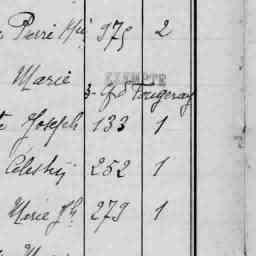 Pierre 375 2
Marie
EXEMPTE
3. Gd Fougeray
Joseph 133 1
Célestin 252 1
Marie Jh 279 1